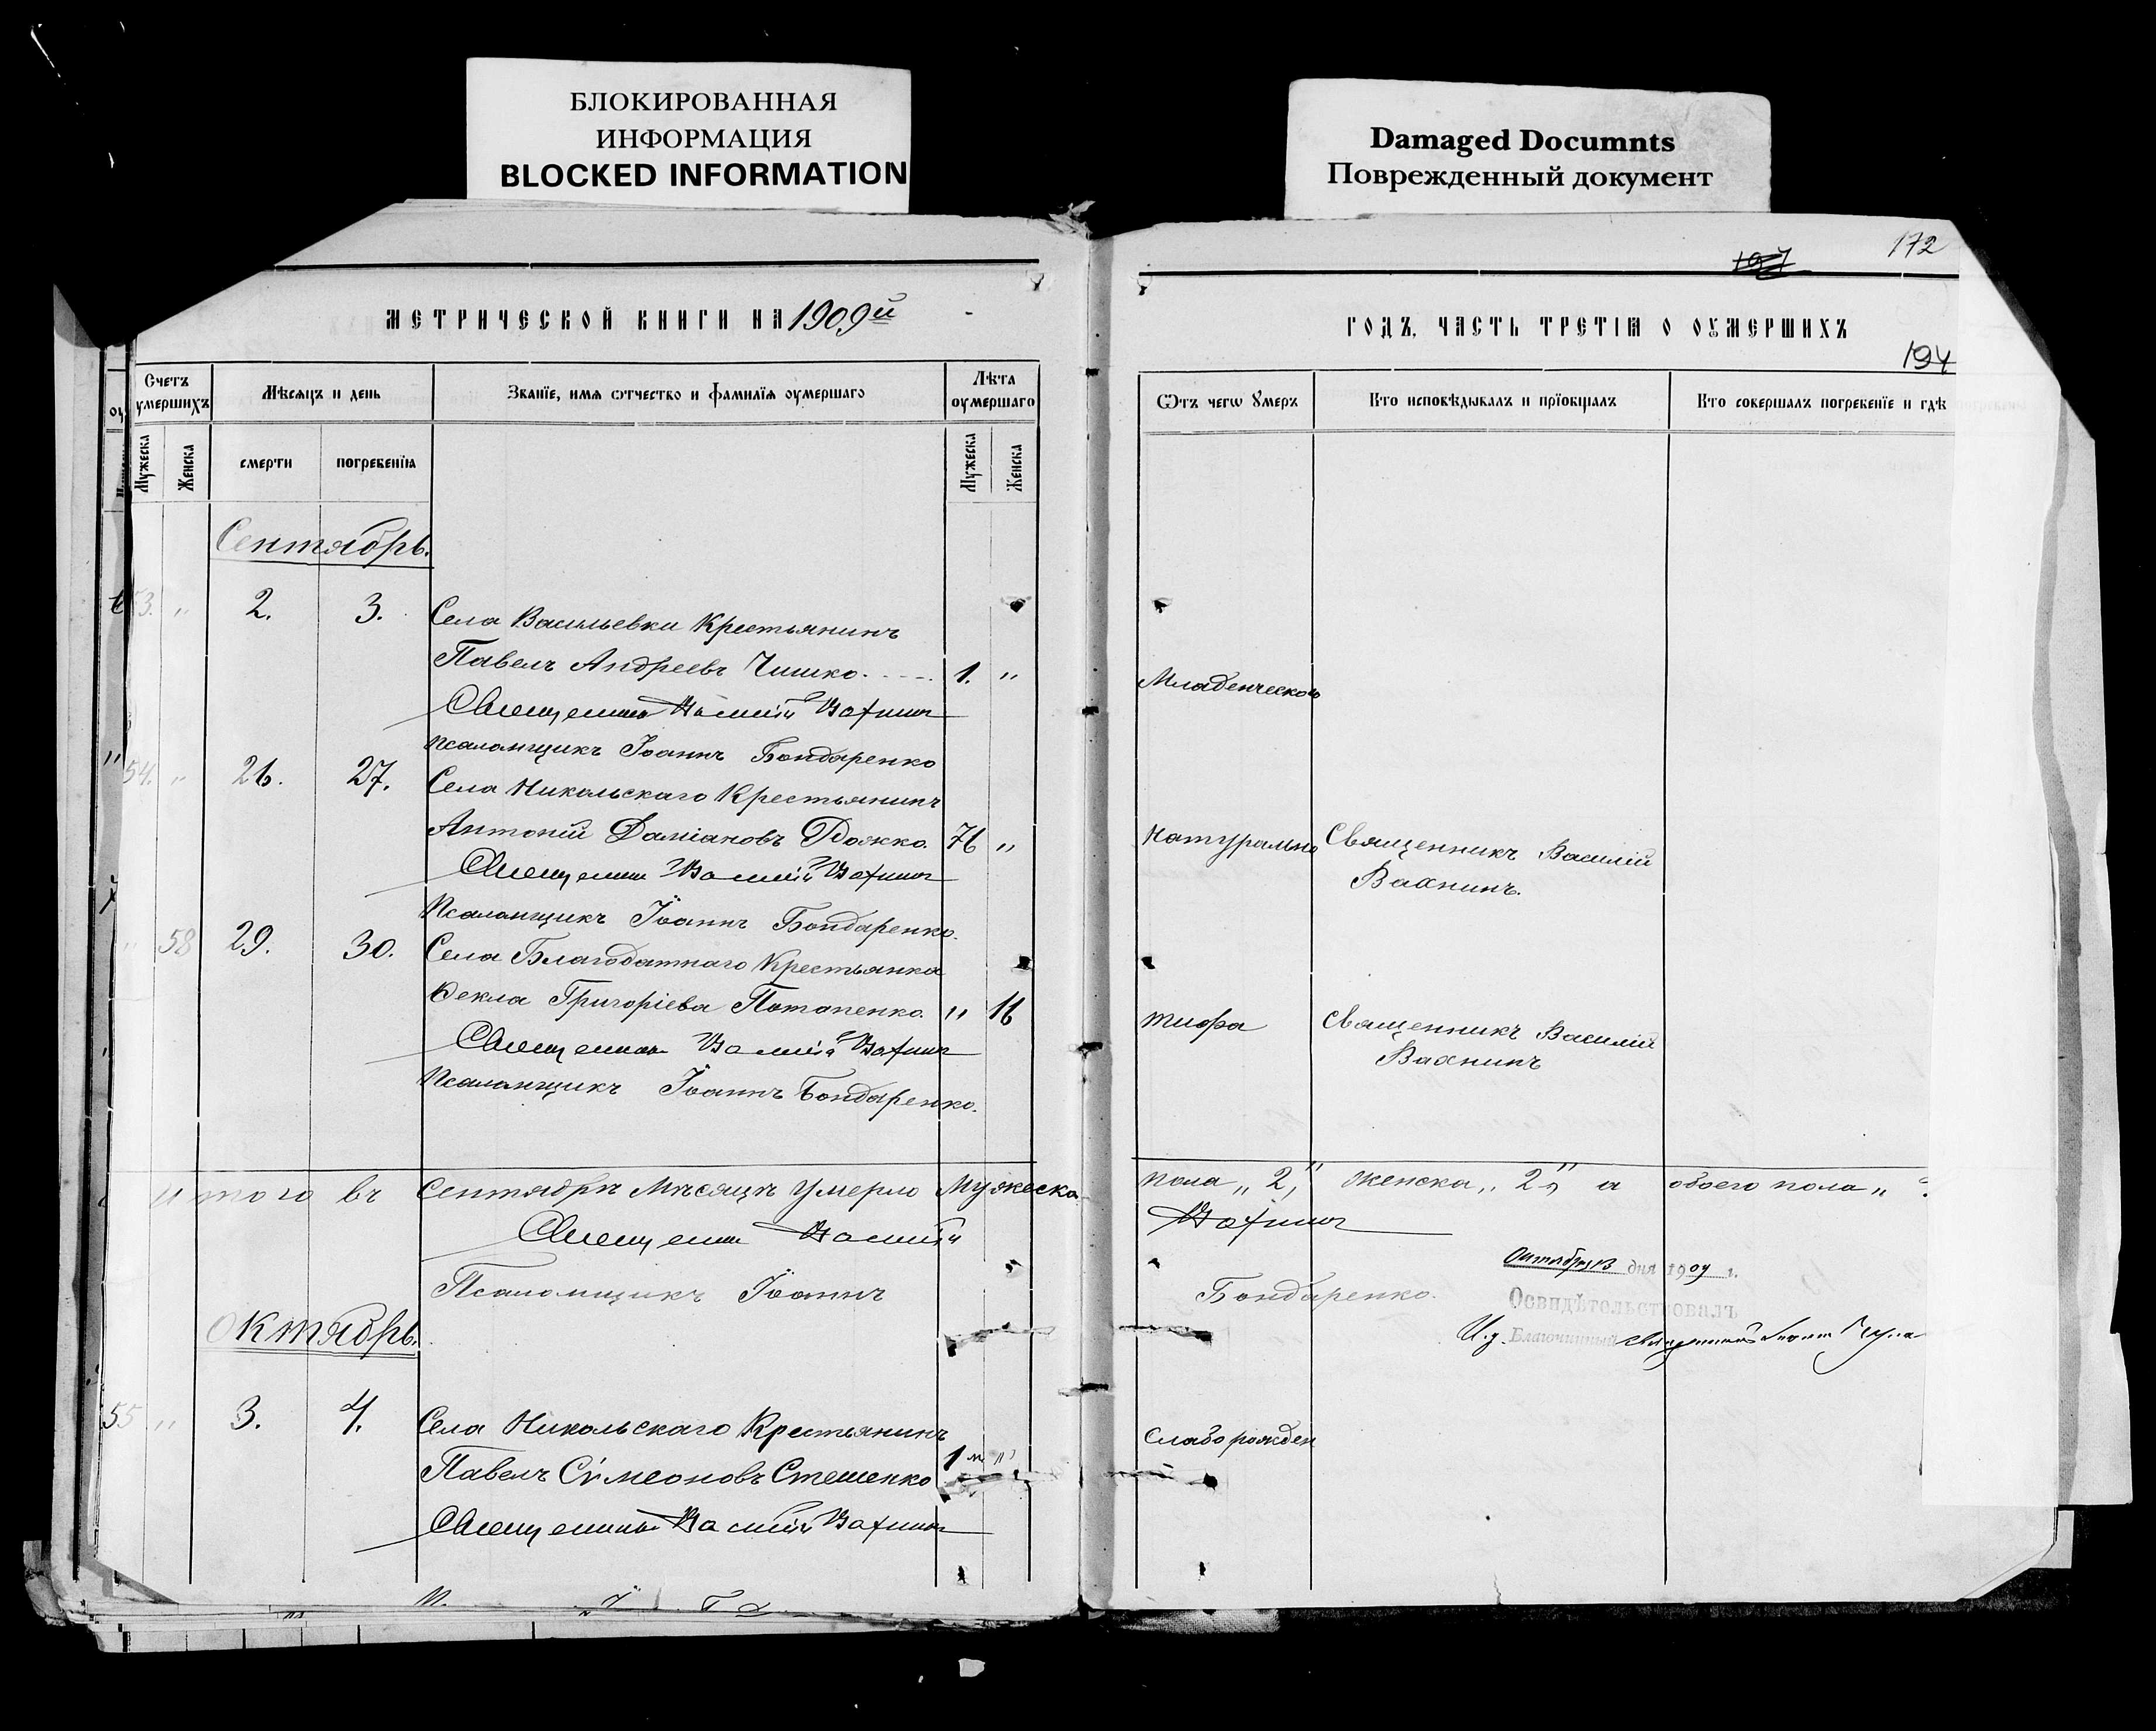 БЛОКИРОВАННАЯ
ИНФОРМАЦИЯ
BLOCKED INFORMATION
Damaged Documnts
Поврежденный документ
172
194
МЕТРИЧЕСКОЙ КНИГИ НА 1909й
ГОДЪ, ЧАСТЬ ТРЕТІѦ О ОУМЕРШИХЪ
Счетъ умершихъ
Мѣсяцъ и день
Званіе, имя ѿчество и фамиліѧ оумершаго
Лѣта оумершаго
Ѿтъ чегѡ ꙋмеръ
Кто исповѣдывалъ и прїобщалъ
Кто совершалъ погребенїе и гдѣ
Мужеска
Женска
смерти
погребенїѧ
Мужеска
Женска
Сентябрь.
53. " 2. 3. Села Васильевки Крестьянинъ
Павелъ Андреевъ Чишко. 1. " Младенческой
Священникъ Василій Вахнинъ
Псаломщикъ Іоаннъ Бондаренко
54. " 26. 27. Села Никольскаго Крестьянинъ
Антоній Даміановъ Рожко. 76 " Натурально Священникъ Василій
Священникъ Василій Вахнинъ Вахнинъ.
Псаломщикъ Іоаннъ Бондаренко.
" 58 29. 30. Села Благодатнаго Крестьянка
Ѳекла Григоріева Потапенко. " 16 тифа Священникъ Василій
Священникъ Василій Вахнинъ Вахнинъ
Псаломщикъ Іоаннъ Бондаренко.
Итого въ Сентябрѣ Мѣсяцѣ Умерло Мужеска пола „2," женска „2„ а обоего пола „
Священникъ Василій Вахнинъ
Октября 13 дня 1909 г.
Псаломщикъ Іоаннъ Бондаренко.
Освидѣтельствовалъ
И.д. Благочинный Священникъ
Октябрь.
55 " 3. 4. Села Никольскаго Крестьянинъ Слабо рожден
Павелъ Сѵмеоновъ Стешенко 1 м "
Священникъ Василій Вахнинъ